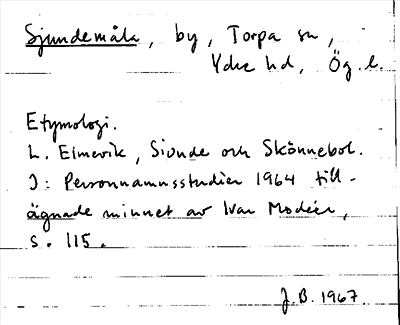 Sjundemåla, by, Torpa sn,
Ydre hd, Ög. l.
Etymologi.
L. Elmevik, Siunde och Skönnebol.
I: Personnamnsstudier 1964 till-
ägnade minnet av Ivar Modéer,
s. 115.
J.B. 1967.